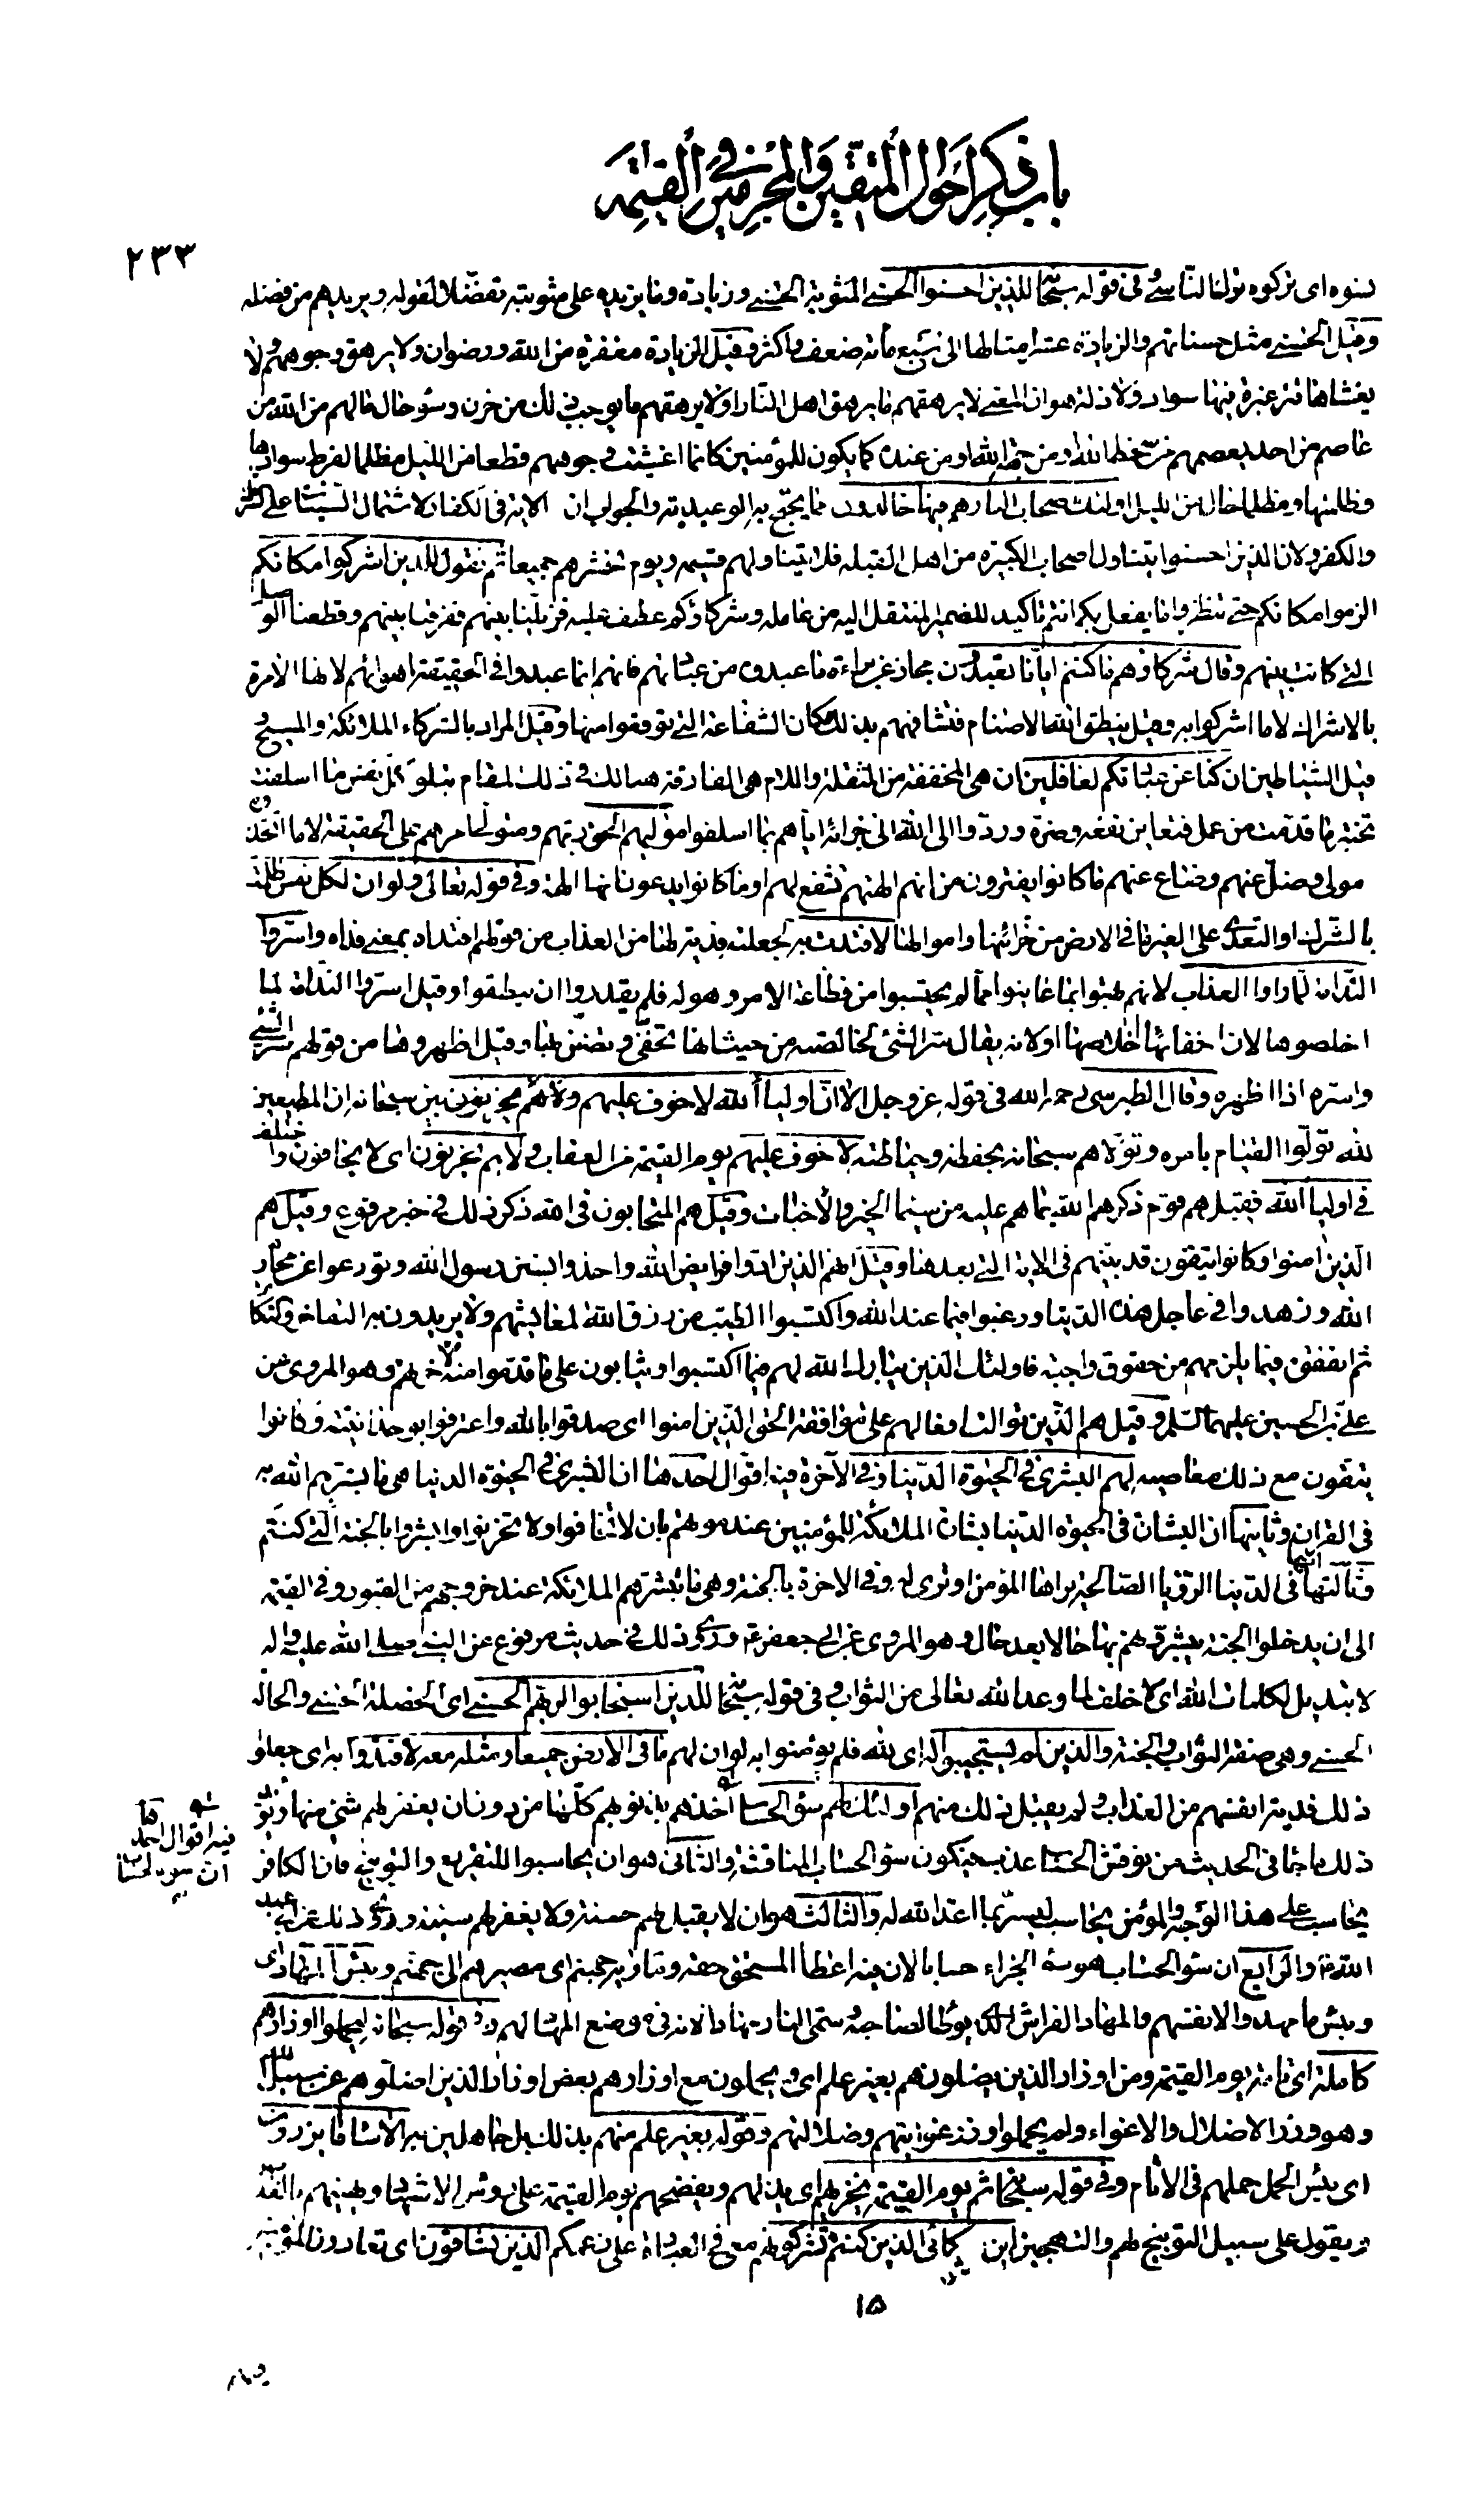 باب ذكر احوال المتقين والمجرمين في القيمة
٢٣٣
نسوه اى تركوه ترك الناسى وفى قوله سبحانه للذين احسنوا الحسنى المثوبة الحسنى وزيادة وما يزيد على مثوبته تفضلا لقوله ويزيدهم من فضله
وقيل الحسنى مثل حسناتهم والزيادة عشر امثالها الى سبع مائة ضعف واكثر وقيل الزيادة مغفرة من الله ورضوان ولا يرهق وجوههم ولا
يغشاها قتر غبرة فيها سواد ولا ذلة هوان المعنى لا يرهقهم ما يرهق اهل النار او لا يرهقهم ما يوجب ذلك من حزن وسوء حال ما لهم من الله من
عاصم من احد يعصمهم من سخط الله او من جهة الله او من عنده كما يكون للمؤمنين كانما اغشيت وجوههم قطعا من الليل مظلما لفرط سوادها
وظلمتها ومظلما حال من الليل اولئك اصحاب النار هم فيها خالدون مما يحتج به الوعيدية والجواب ان الاية فى الكفار لاشتمال السيئات على الشرك
والكفر ولان الذين احسنوا يتناول اصحاب الكبيرة من اهل القبلة فلا يتناولهم قسيمه ويوم نحشرهم جميعا ثم نقول للذين اشركوا مكانكم
الزموا مكانكم حتى تنظروا ما يفعل بكم انتم تاكيد للضمير المنتقل اليه من عامله وشركاؤكم عطف عليه فزيلنا بينهم ففرقنا بينهم وقطعنا الوصل
التى كانت بينهم وقال شركاؤهم ما كنتم ايانا تعبدون مجاز عن براءة ما عبدوه من عبادتهم فانهم انما عبدوا فى الحقيقة اهواءهم لانها الامرة
بالاشراك لا ما اشركوا به وقيل ينطق الله الاصنام فتشافههم بذلك مكان الشفاعة التى توقعوا منها وقيل المراد بالشركاء الملائكة والمسيح و
قيل الشياطين ان كنا عن عبادتكم لغافلين ان هى المخففة من المثقلة واللام هى الفارقة هنالك فى ذلك المقام تبلو كل نفس ما اسلفت
تختبر ما قدمت من عمل فتعاين نفعه وضره وردوا الى الله الى جزائه اياهم بما اسلفوا موليهم الحق ربهم ومتولى امرهم على الحقيقة لا ما اتخذوه
مولى وضل عنهم وضاع عنهم ما كانوا يفترون من انهم الهتهم تشفع لهم او ما كانوا يدعون انها الهة وفى قوله تعالى ولو ان لكل نفس ظلمت
بالشرك او التعدى على الغير ما فى الارض من خزائنها واموالها لافتدت به لجعلته فدية لها من العذاب من قولهم افتداه بمعنى فداه واسروا
الندامة لما راوا العذاب لانهم بهتوا بما عاينوا مما لم يحتسبوا من فظاعة الامر وهوله فلم يقدروا ان ينطقوا وقيل اسروا الندامة لما
اخلصوها لان اخفائها اخلاصها او لانه يقال سر الشئ لخالصته من حيث انها تخفى ويضن بها وقيل اظهروها من قولهم سر الشئ
واسره اذا اظهره وقال الطبرسى رحمه الله فى قوله عز وجل الا ان اولياء الله لا خوف عليهم ولا هم يحزنون بين سبحانه ان المطيعين
لله تولوا القيام بامره وتولاهم سبحانه بحفظه وحياطته لا خوف عليهم يوم القيمة من العقاب ولا هم يحزنون اى لا يخافون واختلف
فى اولياء الله فقيل هم قوم ذكرهم الله بما هم عليه من سيماء الخير والاخبات وقيل هم المتحابون فى الله ذكر ذلك فى خبر مرفوع وقيل هم
الذين امنوا وكانوا يتقون قد بينهم فى الاية التى بعدها وقيل انهم الذين ادوا فرايض الله واخذوا بسنن رسول الله وتورعوا عن محارم
الله وزهدوا فى عاجل هذه الدنيا ورغبوا فيما عند الله واكتسبوا الطيب من رزق الله لمعايشهم ولا يريدون به التفاخر والتكاثر
ثم انفقوه فيما يلزمهم من حقوق واجبة فاولئك الذين يبارك الله لهم فيما اكتسبوا ويثابون على ما قدموا منه لاخرتهم وهو المروى عن
على بن الحسين عليهما السلم وقيل هم الذين توالت افعالهم على موافقة الحق الذين امنوا اى صدقوا بالله واعترفوا بوحدانيته وكانوا
يتقون مع ذلك معاصيه لهم البشرى فى الحيوة الدنيا وفى الآخرة فيه اقوال احدها ان البشرى فى الحيوة الدنيا هى ما بشرهم الله به
فى القران وثانيها ان البشارة فى الحيوة الدنيا بشارة الملائكة للمؤمنين عند موتهم بان لا تخافوا ولا تحزنوا وابشروا بالجنة التى كنتم
وثالثها انها فى الدنيا الرؤيا الصالحة يراها المؤمن او ترى له وفى الاخرة بالجنة وهى ما تبشرهم الملائكة عند خروجهم من القبور وفى القيمة
الى ان يدخلوا الجنة يبشرونهم بها حالا بعد حال وهو المروى عن ابى جعفر ع وروى ذلك فى حديث مرفوع عن النبى صلى الله عليه واله
لا تبديل لكلمات الله اى لا خلف لما وعد الله تعالى من الثواب وفى قوله سبحانه للذين استجابوا لربهم الحسنى اى الخصلة الحسنى والحالة
الحسنى وهى صفة الثواب والجنة والذين لم يستجيبوا له اى لله فلم يؤمنوا به لو ان لهم ما فى الارض جميعا ومثله معه لافتدوا به اى جعلوا
ذلك فدية انفسهم من العذاب ولم يقبل ذلك منهم اولئك لهم سوء الحساب اخذهم بذنوبهم كلها من دون ان يغفر لهم شئ منها ويؤيد
ذلك ما جاء فى الحديث من نوقش الحساب عذب فيكون سوء الحساب المناقشة والثانى هو ان يحاسبوا للتقريع والتوبيخ فان الكافر
يحاسب على هذا الوجه والمؤمن يحاسب ليسر بما اعد الله له والثالث هو ان لا يقبل لهم حسنة ولا يغفر لهم سيئة وروى ذلك عن ابى عبد
الله ع والرابع ان سوء الحساب هو سوء الجزاء حسابا لان فيه اعطاء المستحق حقه وماويهم جهنم اى مصيرهم الى جهنم وبئس المهاد اى
وبئس ما مهدوا لانفسهم والمهاد الفراش الذى يوطأ لصاحبه وسمى النار مهادا لانه فى موضع المهاد لهم وفى قوله سبحانه ليحملوا اوزارهم
كاملة اى تامة يوم القيمة ومن اوزار الذين يضلونهم بغير علم اى ويحملون مع اوزارهم بعض اوزار الذين اضلوهم عن سبيل الله
وهو وزر الاضلال والاغواء ولم يحملوا وزر غوايتهم وضلالتهم وقوله بغير علم منهم بذلك بل جاهلين به الا ساء ما يزرون
اى بئس الحمل حملهم فى الآثام وفى قوله سبحانه ثم يوم القيمة يخزيهم اى يذلهم ويفضحهم يوم القيمة على رؤس الاشهاد ويهينهم بالعذاب
ويقول على سبيل التوبيخ لهم والتهجين اين شركائى الذين كنتم تشركونهم معى فى العبادة على زعمكم الذين تشاقون اى تعادون المؤمنين
فيه اقوال احدها
ان سوء الحساب
١٥